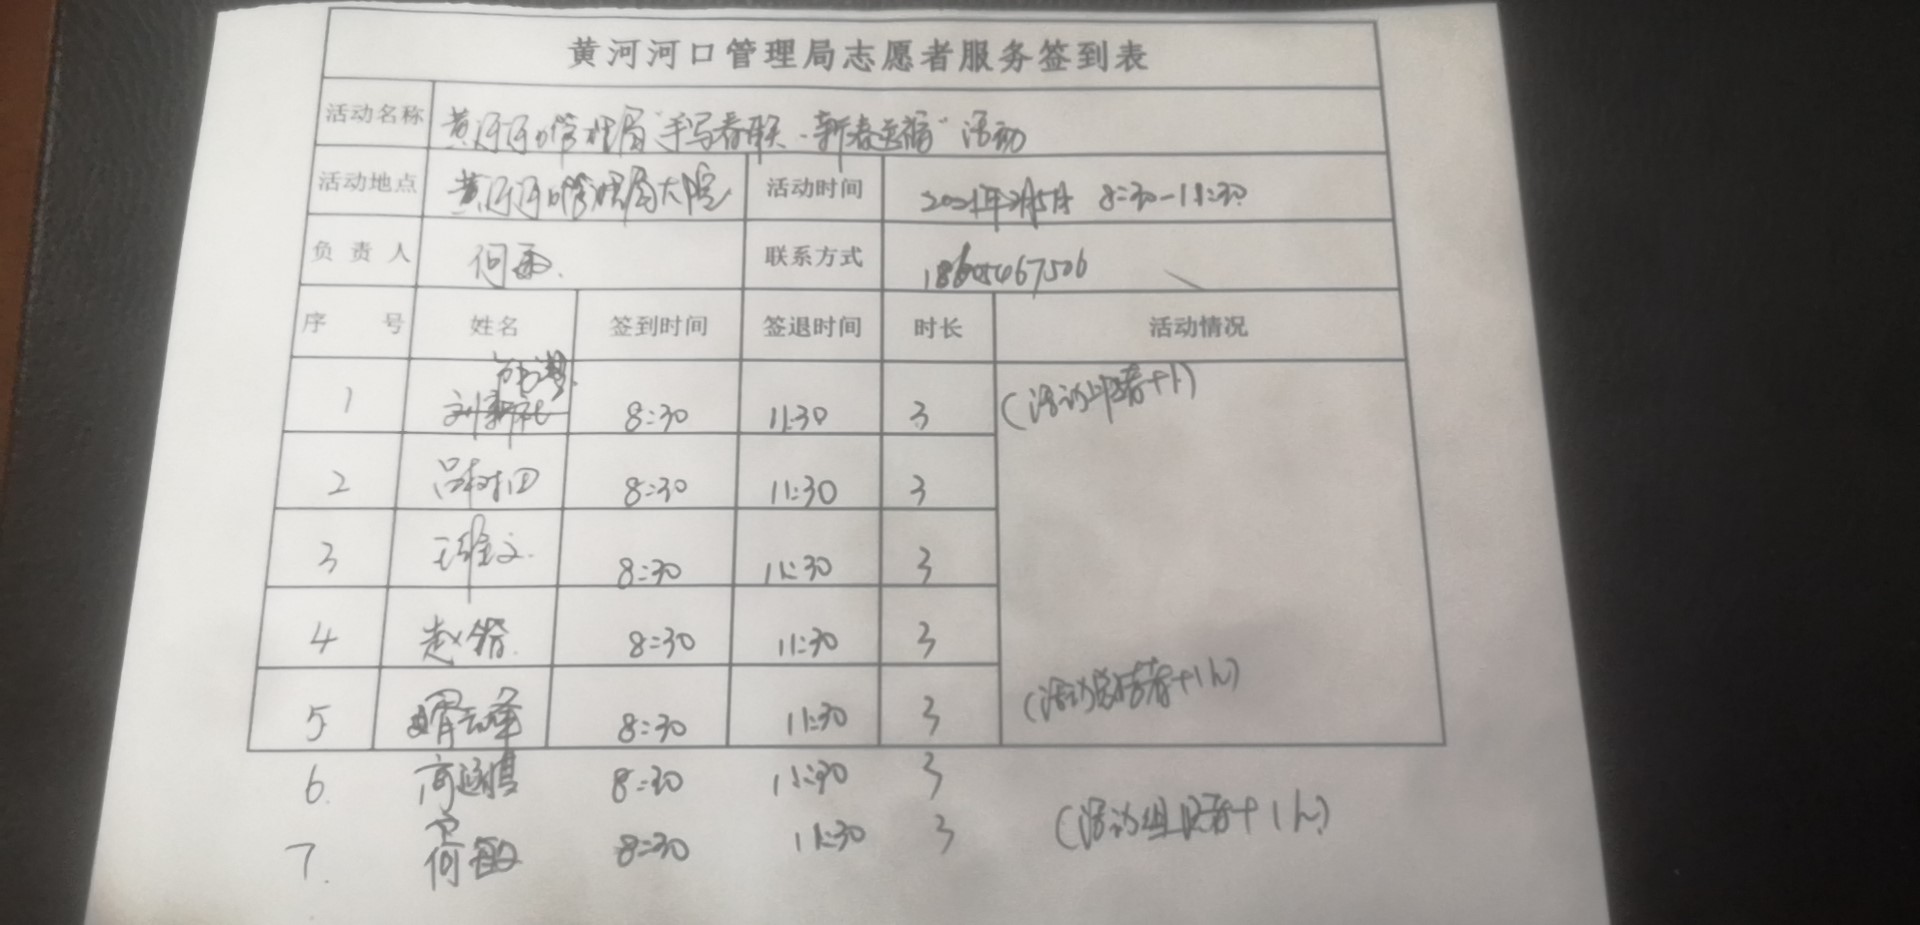 黄河河口管理局志愿者服务签到表
活动名称 黄河河口管理局“手写春联·新春送福”活动
活动地点 黄河河口管理局大院 活动时间 2021年2月5日 8:30-11:30
负责人 何 联系方式
序号 姓名 签到时间 签退时间 时长 活动情况
1 刘新社 8:30 11:30 3 (活动组织者+1h)
2 吕树田 8:30 11:30 3
3 王维文 8:30 11:30 3
4 赵 8:30 11:30 3
5 8:30 11:30 3 (活动总结者+1h)
6. 高 8:30 11:30 3
7. 何 8:30 11:30 3 (活动组织者+1h)